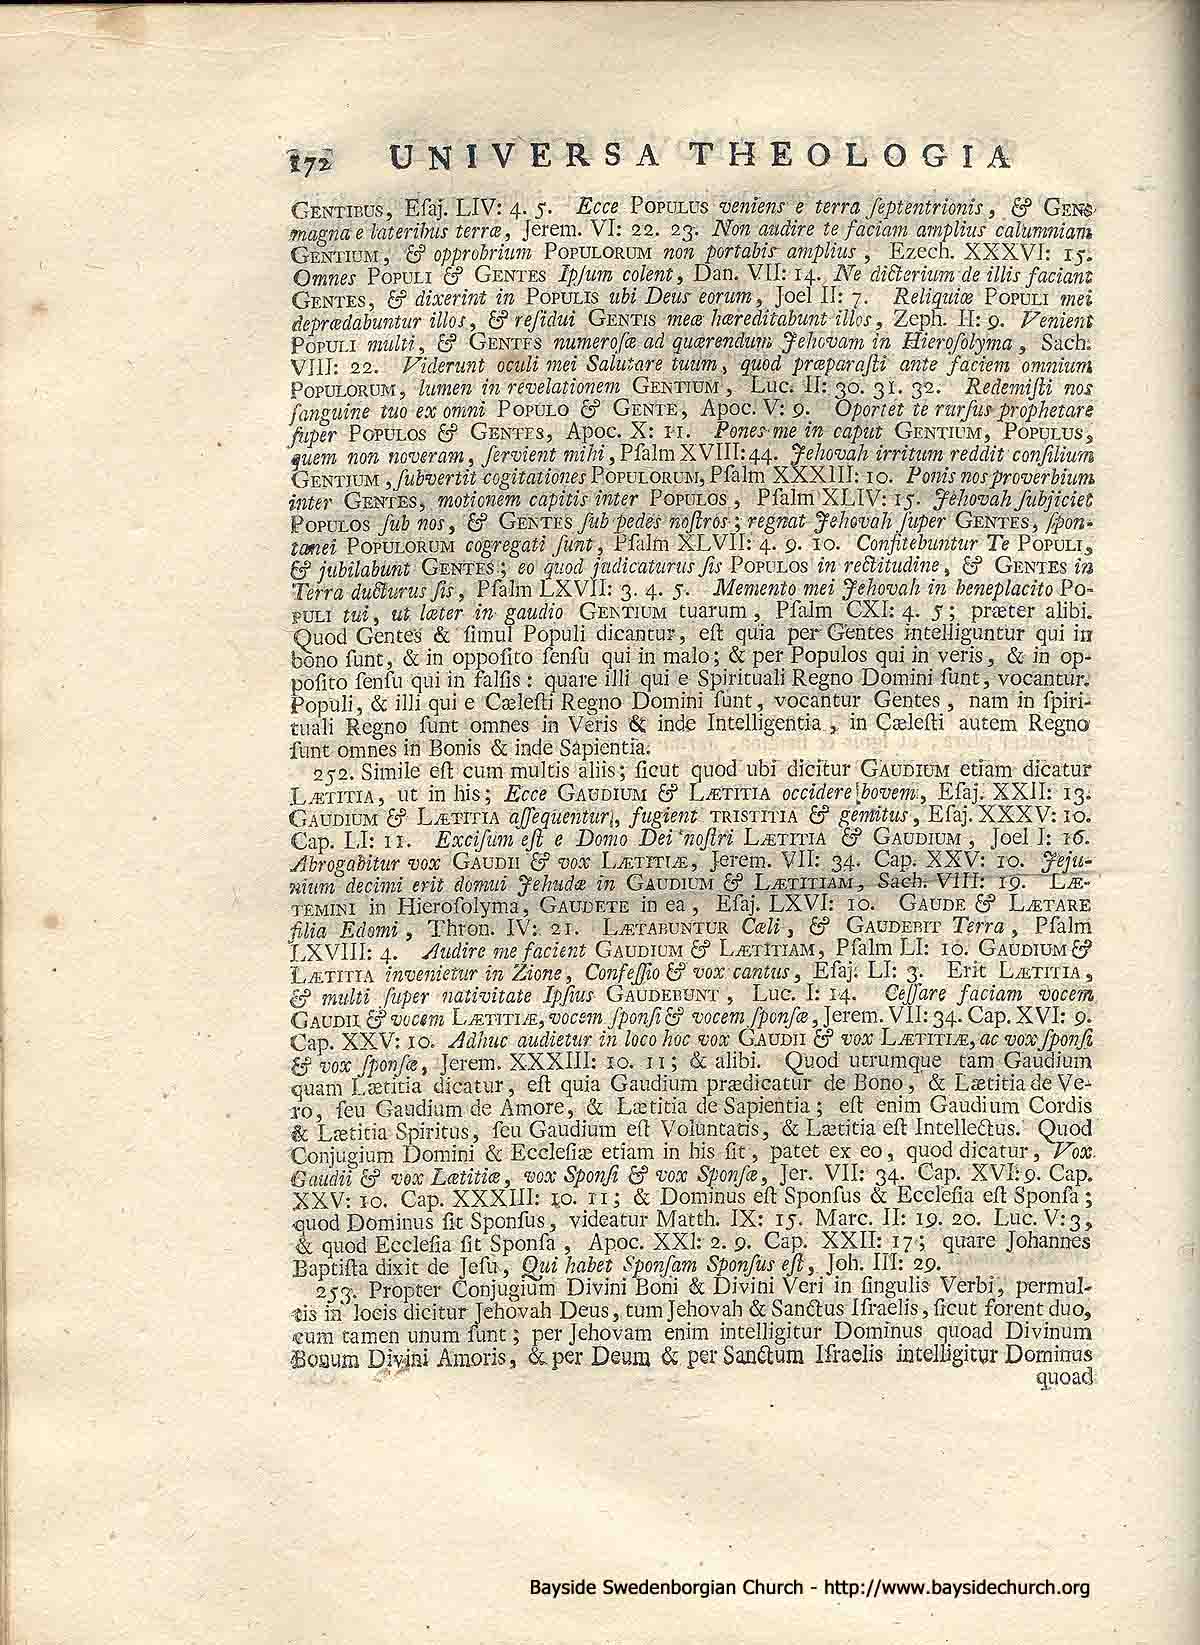 172 UNIVERSA THEOLOGIA
GENTIBUS, Eſaj. LIV: 4. 5. Ecce POPULUS veniens e terra ſeptentrionis, & GENS
magna e lateribus terræ, Jerem. VI: 22. 23. Non audire te faciam amplius calumniam
GENTIUM, & opprobrium POPULORUM non portabis amplius, Ezech. XXXVI: 15.
Omnes POPULI & GENTES Ipſum colent, Dan. VII: 14. Ne dicterium de illis faciant
GENTES, & dixerint in POPULIS ubi Deus eorum, Joel II: 7. Reliquiæ POPULI mei
deprædabuntur illos, & reſidui GENTIS meæ hæreditabunt illos, Zeph. II: 9. Venient
POPULI multi, & GENTES numeroſæ ad quærendum Jehovam in Hieroſolyma, Sach.
VIII: 22. Viderunt oculi mei Salutare tuum, quod præparaſti ante faciem omnium
POPULORUM, lumen in revelationem GENTIUM, Luc. II: 30. 31. 32. Redemiſti nos
ſanguine tuo ex omni POPULO & GENTE, Apoc. V: 9. Oportet te rurſus prophetare
ſuper POPULOS & GENTES, Apoc. X: 11. Pones me in caput GENTIUM, POPULUS,
quem non noveram, ſervient mihi, Pſalm XVIII: 44. Jehovah irritum reddit conſilium
GENTIUM, ſubvertit cogitationes POPULORUM, Pſalm XXXIII: 10. Ponis nos proverbium
inter GENTES, motionem capitis inter POPULOS, Pſalm XLIV: 15. Jehovah ſubjiciet
POPULOS ſub nos, & GENTES ſub pedes noſtros; regnat Jehovah ſuper GENTES, ſpon-
tanei POPULORUM cogregati ſunt, Pſalm XLVII: 4. 9. 10. Confitebuntur Te POPULI,
& jubilabunt GENTES; eo quod judicaturus ſis POPULOS in rectitudine, & GENTES in
Terra ducturus ſis, Pſalm LXVII: 3. 4. 5. Memento mei Jehovah in beneplacito PO-
PULI tui, ut læter in gaudio GENTIUM tuarum, Pſalm CXI: 4. 5; præter alibi.
Quod Gentes & ſimul Populi dicantur, eſt quia per Gentes intelliguntur qui in
bono ſunt, & in oppoſito ſenſu qui in malo; & per Populos qui in veris, & in op-
poſito ſenſu qui in falſis: quare illi qui e Spirituali Regno Domini ſunt, vocantur.
Populi, & illi qui e Cæleſti Regno Domini ſunt, vocantur Gentes, nam in ſpiri-
tuali Regno ſunt omnes in Veris & inde Intelligentia, in Cæleſti autem Regno
ſunt omnes in Bonis & inde Sapientia.
252. Simile eſt cum multis aliis; ſicut quod ubi dicitur GAUDIUM etiam dicatur
LÆTITIA, ut in his; Ecce GAUDIUM & LÆTITIA occidere bovem, Eſaj. XXII: 13.
GAUDIUM & LÆTITIA aſſequentur, fugient TRISTITIA & gemitus, Eſaj. XXXV: 10.
Cap. LI: 11. Exciſum eſt e Domo Dei noſtri LÆTITIA & GAUDIUM, Joel I: 16.
Abrogabitur vox GAUDII & vox LÆTITIÆ, Jerem. VII: 34. Cap. XXV: 10. Jeju-
nium decimi erit domui Jehudæ in GAUDIUM & LÆTITIAM, Sach. VIII: 19. LÆ-
TEMINI in Hieroſolyma, GAUDETE in ea, Eſaj. LXVI: 10. GAUDE & LÆTARE
filia Edomi, Thron. IV: 21. LÆTABUNTUR Cæli, & GAUDEBIT Terra, Pſalm
LXVIII: 4. Audire me facient GAUDIUM & LÆTITIAM, Pſalm LI: 10. GAUDIUM &
LÆTITIA invenietur in Zione, Confeſſio & vox cantus, Eſaj. LI: 3. Erit LÆTITIA,
& multi ſuper nativitate Ipſius GAUDEBUNT, Luc. I: 14. Ceſſare faciam vocem
GAUDII & vocem LÆTITIÆ, vocem ſponſi & vocem ſponſæ, Jerem. VII: 34. Cap. XVI: 9.
Cap. XXV: 10. Adhuc audietur in loco hoc vox GAUDII & vox LÆTITIÆ, ac vox ſponſi
& vox ſponſæ, Jerem. XXXIII: 10. 11; & alibi. Quod utrumque tam Gaudium
quam Lætitia dicatur, eſt quia Gaudium prædicatur de Bono, & Lætitia de Ve-
ro, ſeu Gaudium de Amore, & Lætitia de Sapientia; eſt enim Gaudium Cordis
& Lætitia Spiritus, ſeu Gaudium eſt Voluntatis, & Lætitia eſt Intellectus. Quod
Conjugium Domini & Eccleſiæ etiam in his ſit, patet ex eo, quod dicatur, Vox
Gaudii & vox Lætitiæ, vox Sponſi & vox Sponſæ, Jer. VII: 34. Cap. XVI: 9. Cap.
XXV: 10. Cap. XXXIII: 10. 11; & Dominus eſt Sponſus & Eccleſia eſt Sponſa;
quod Dominus ſit Sponſus, videatur Matth. IX: 15. Marc. II: 19. 20. Luc. V: 3,
& quod Eccleſia ſit Sponſa, Apoc. XXI: 2. 9. Cap. XXII: 17; quare Johannes
Baptiſta dixit de Jeſu, Qui habet Sponſam Sponſus eſt, Joh. III: 29.
253. Propter Conjugium Divini Boni & Divini Veri in ſingulis Verbi, permul-
tis in locis dicitur Jehovah Deus, tum Jehovah & Sanctus Iſraelis, ſicut forent duo,
cum tamen unum ſunt; per Jehovam enim intelligitur Dominus quoad Divinum
Bonum Divini Amoris, & per Deum & per Sanctum Iſraelis intelligitur Dominus
quoad
Bayside Swedenborgian Church - http://www.baysidechurch.org